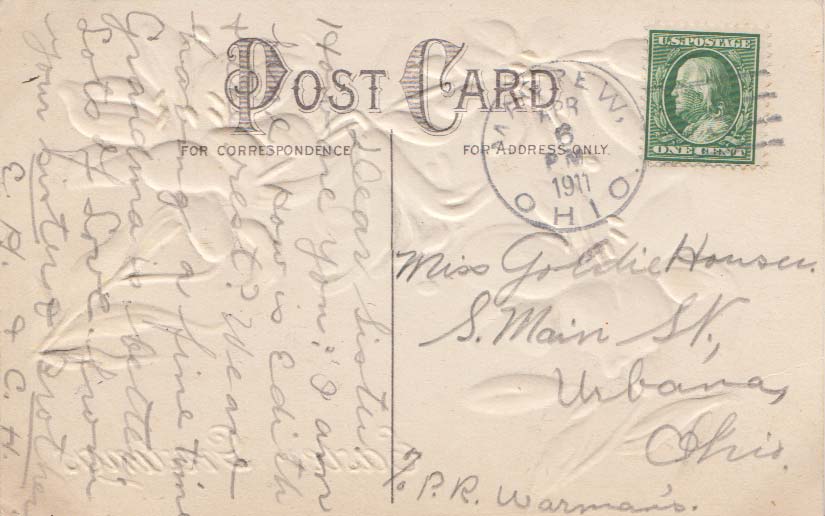 POST CARD
FOR CORRESPONDENCE
FOR ADDRESS ONLY.
U.S. POSTAGE
ONE CENT
APR
6
PM
1911
OHIO.
Miss Goldie Houser.
S. Main St,
Urbana,
Ohio.
℅ P.R. Warman's.
Dear Sister
How are you? I am
How is Edith
& rest? We are
having a fine time
Grandma is better.
Lots of Love from
Your Sister & Brother
E. H. & C. H.
Easter Greetings